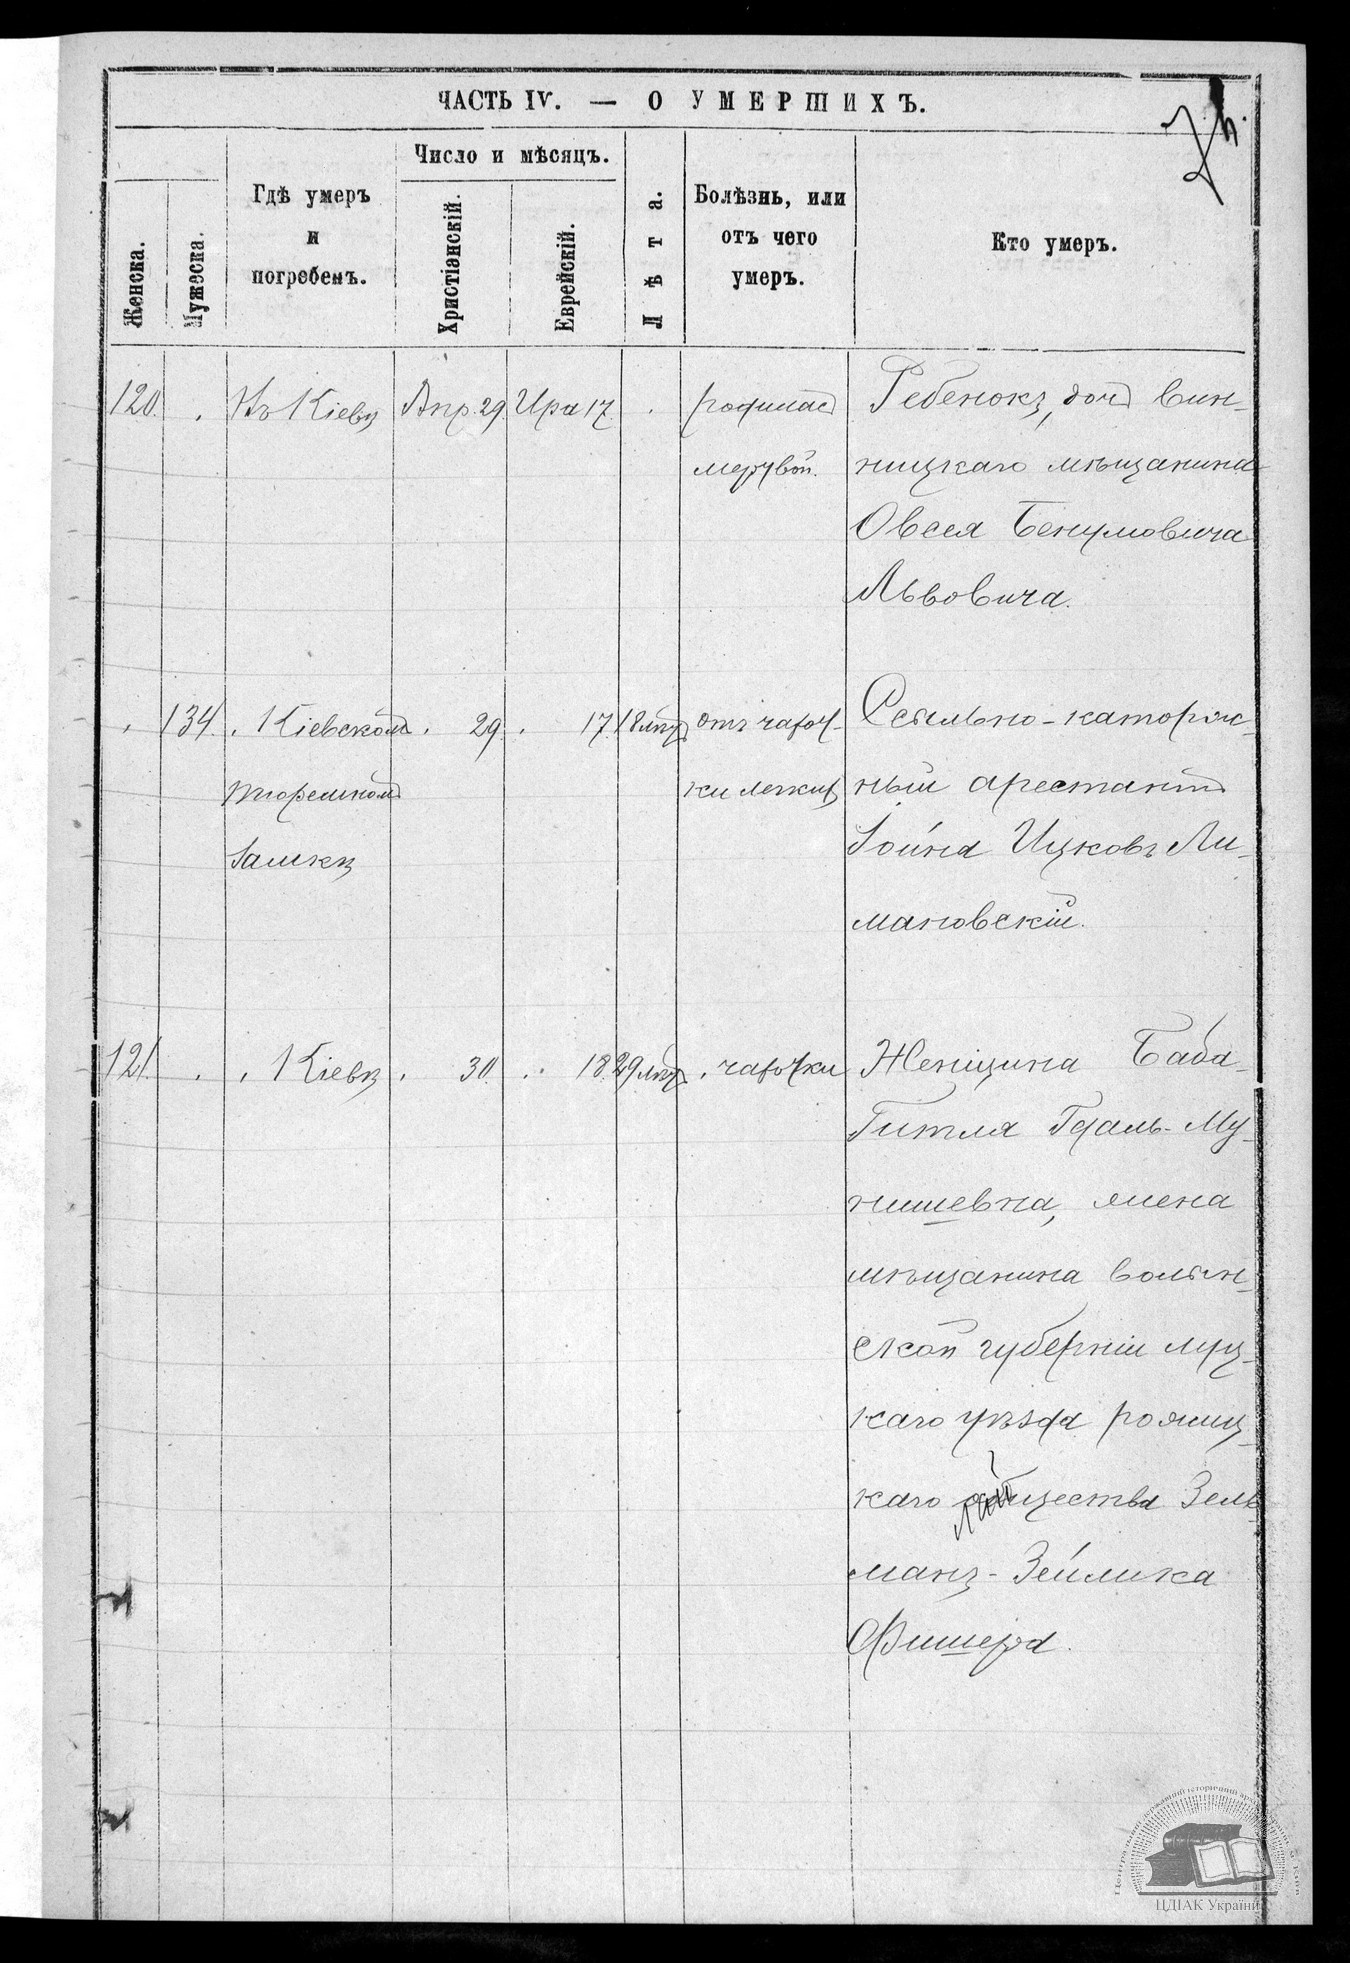 ЧАСТЬ IV. — О УМЕРШИХЪ.
Женска.
Мужеска.
Гдѣ умеръ
и
погребенъ.
Число и мѣсяцъ.
Христіанскій.
Еврейскій.
Лѣта.
Болѣзнь, или
отъ чего
умеръ.
Кто умеръ.
120. Въ Кіевѣ Апр. 29. Ира 17. родилась Ребенокъ, доч Вин-
мертвой. ницкаго мѣщанина
Овсея Бенумовича
Львовича.
134. Кіевском 29. 17. 18 лѣтъ отъ чахот- Ссыльно-каторж-
тюремном ки легкихъ ный арестантъ
замкѣ Іойна Ицковъ Ли-
мановскій.
121. Кіевѣ 30. 18. 29 лѣтъ чахотки Женщина Баба-
Гитля Гдаль-Му-
нишевна, жена
мѣщанина Волын-
ской губерніи луц-
каго уѣзда рожищ-
каго общества Зель-
манъ-Зейлика
Фишера.
ЦДІАК України